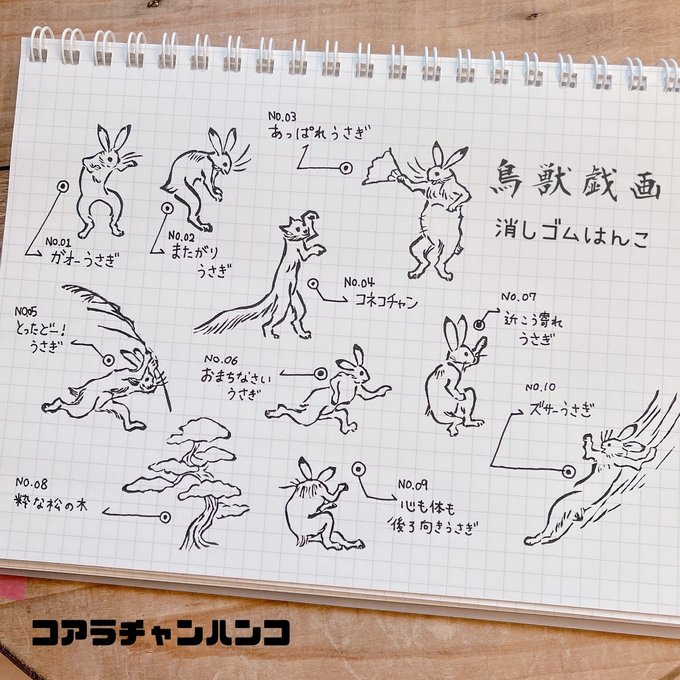 鳥獣戯画
消しゴムはんこ
NO.01
ガオーうさぎ
NO.02
またがり
うさぎ
NO.03
あっぱれうさぎ
NO.04
コネコチャン
NO.05
とったどー!
うさぎ
NO.06
おまちなさい
うさぎ
NO.07
近こう寄れ
うさぎ
NO.08
粋な松の木
NO.09
心も体も
後ろ向きうさぎ
NO.10
ズサーうさぎ
コアラチャンハンコ